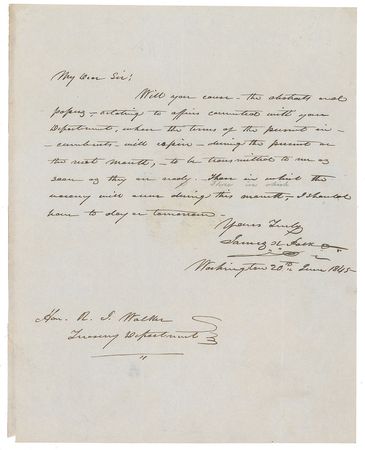 My Dear Sir!
Will you cause - the abstracts and
papers - relating to offices connected with your
Department, where the terms of the present in-
-cumbents - will expire - during the present or
the next month, - to be transmitted to me as
soon as they are ready. Those in which the
Those in which
vacancy will occur during this month - I should
have to day or tomorrow -
Yours Truly
James K. Polk
Washington 20th June 1845
Hon. R. J. Walker
Treasury Department